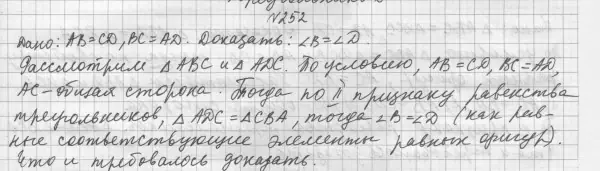 №252
Дано: AB=CD, BC=AD. Доказать: ∠B=∠D
Рассмотрим △ABC и △ADC. По условию, AB=CD, BC=AD,
AC-общая сторона. Тогда по II признаку равенства
треугольников, △ADC=△CBA, тогда ∠B=∠D (как рав-
ные соответствующие элементы равных фигур).
Что и требовалось доказать.